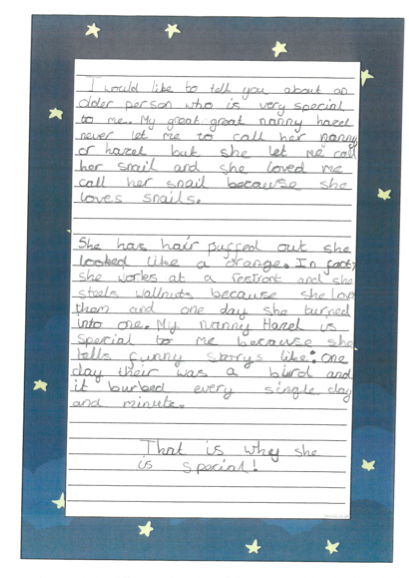 I would like to tell you about an
older person who is very special
to me. My great great nanny hazel
never let me to call her nanny
or hazel but she let me call
her snail and she loved me
call her snail because she
loves snails.
She has hair puffed out she
looked like a orange. In fact,
she works at a restront and she
steels wallnuts because she love
them and one day she burned
into one. My nanny Hazel is
special to me because she
tells funny storys like: one
day their was a bird and
it burbed every single day
and minute.
That is why she
is special!